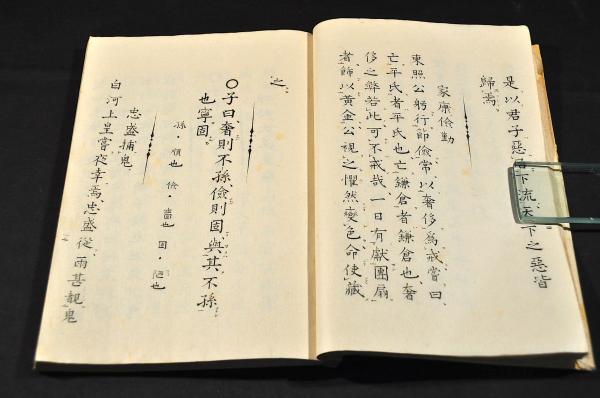 是以君子惡居下流天下之惡皆
歸焉
家康儉勤
東照公躬行節儉常以奢侈爲戒嘗曰
亡平氏者平氏也亡鎌倉者鎌倉也奢
侈之弊若此可不戒哉一日有獻團扇
者飾以黃金公視之懼然變色命使藏
之
〇子曰奢則不孫儉則固與其不孫
也寧固
孫・順也 儉・嗇也 固・陋也
忠盛捕鬼
白河上皇嘗夜幸焉忠盛從雨甚覩鬼